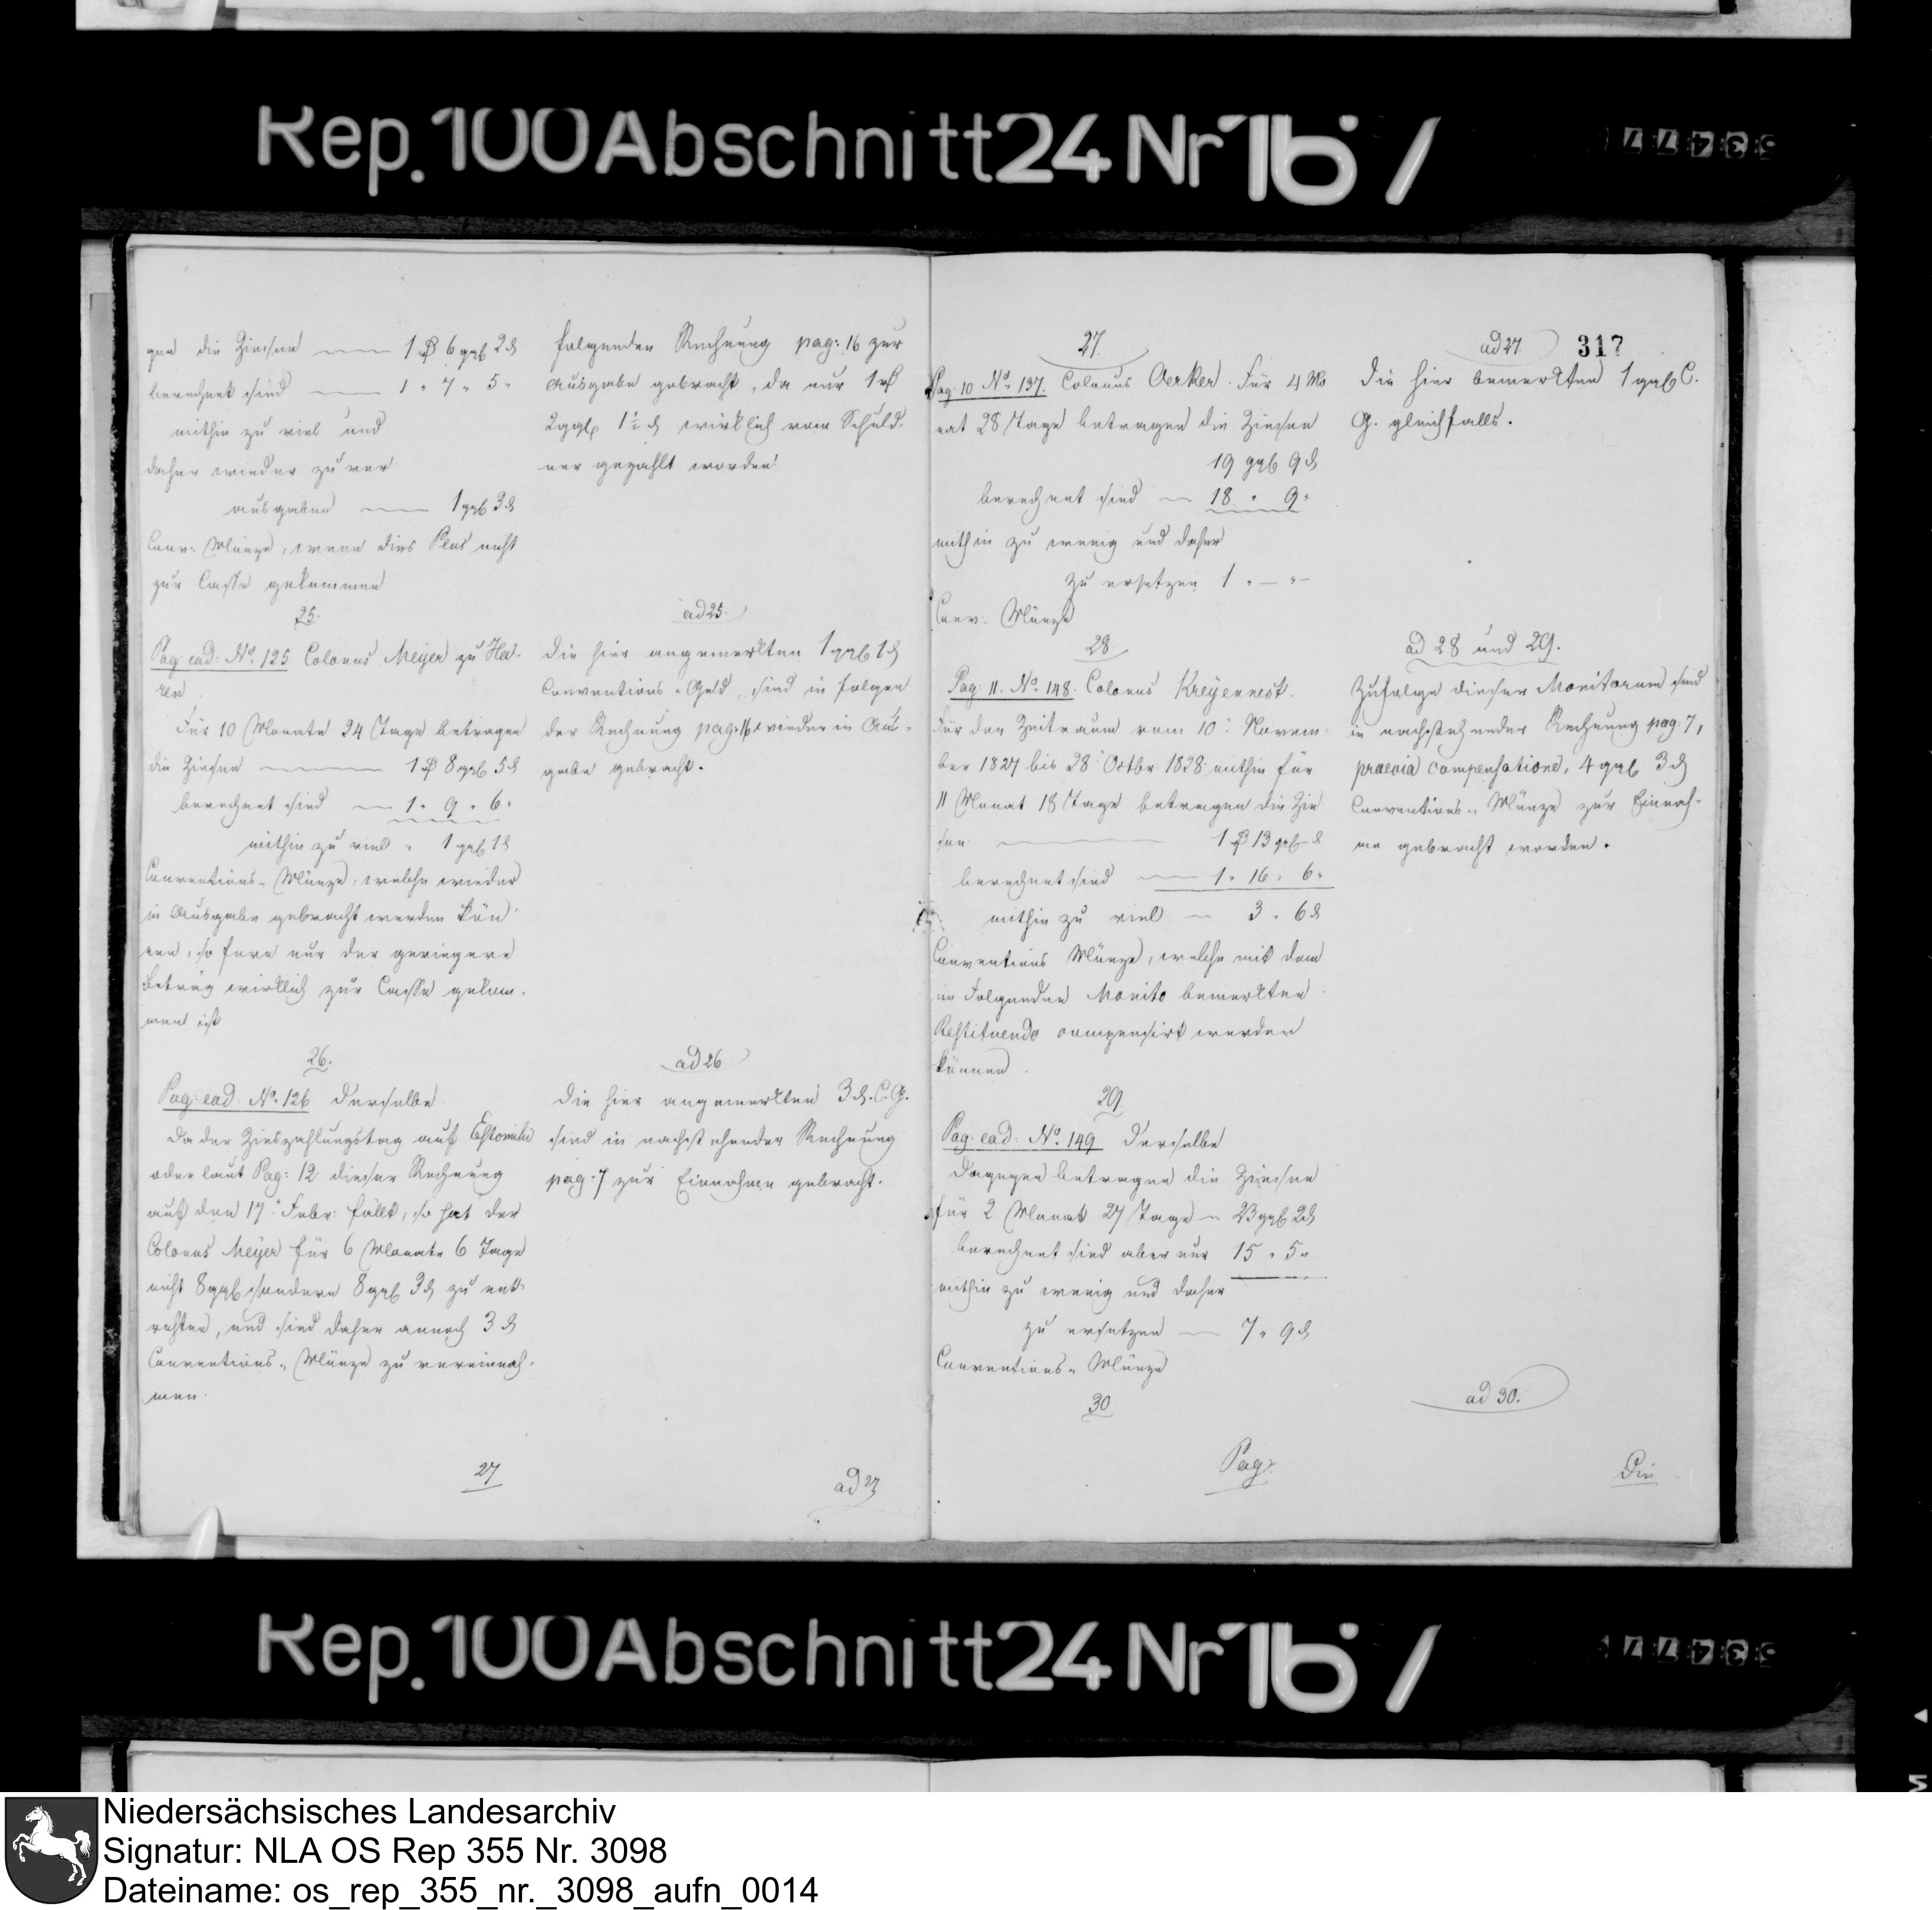 Rep. 100 Abschnitt 24 Nr 16 /
53477
gen die Zinsen — 1 rß 6 ggl 2 d
berechnet sind — 1 " 7 " 5 "
mithin zu viel und
daher wieder zu ver
ausgaben — 1 ggl 3 d
Conv: Münze, wenn dies Plus nicht
zur Casse gekommen
25.
Pag: ead: No. 125 Colonus Meyer zu Ha-
ren
Für 10 Monate 24 Tage betragen
die Zinsen — 1 rß 8 ggl 5 d
berechnet sind — 1 " 9 " 6 "
mithin zu viel " 1 ggl 1 d
Conventions-Münze, welche wieder
in Ausgabe gebracht werden kön-
nen, so fern nur der geringere
Betrag wirklich zur Casse gekom-
men ist
26.
Pag: ead. No. 126 Derselbe
Da der Zinszahlungstag auf Estomihi
oder laut Pag: 12 dieser Rechnung
auf den 17. Febr: fällt, so hat der
Colonus Meyer für 6 Monate 6 Tage
nicht 8 ggl sondern 8 ggl 3 d zu ent-
richten, und sind daher annoch 3 d
Conventions-Münze zu vereinnah-
men.
27
folgender Rechnung pag: 16 zur
Ausgabe gebracht, da nur 1 rß
2 ggl 1½ d wirklich vom Schuld-
ner gezahlt worden.
ad 25.
Die hier angemerkten 1 ggl 1 d
Conventions-Geld, sind in folgen
der Rechnung pag: 16 wieder in Aus-
gabe gebracht.
ad 26
Die hier angemerkten 3 d. C. G.
sind in nachstehender Rechnung
pag: 7 zur Einnahme gebracht.
ad 27
27.
Pag 10 No. 137. Colonus Oerker. Für 4 Mo
nat 28 Tage betragen die Zinsen
19 ggl 9 d
berechnet sind — 18 " 9 "
mithin zu wenig und daher
zu ersetzen 1 " — " —
Conv: Münze
28.
Pag: 11. No. 148. Colonus Kreyennest.
Für den Zeitraum vom 10. Novem
ber 1827 bis 28. Octbr. 1828 mithin für
11 Monat 18 Tage betragen die Zin
sen — 1 rß 13 ggl — d
berechnet sind — 1 " 16 " 6 "
mithin zu viel — 3 " 6 d
Conventions Münze, welche mit dem
im Folgenden Monito bemerkten
Restituendo compensirt werden
können.
29.
Pag: ead: No. 149 Derselbe
Dagegen betragen die Zinsen
für 2 Monat 27 Tage — 23 ggl 2 d
berechnet sind aber nur 15 " 5 "
mithin zu wenig und daher
zu ersetzen — 7 " 9 d
Conventions-Münze
30
Pag:
ad 27. 317
Die hier bemerkten 1 ggl C.
G. gleichfalls.
ad 28 und 29.
Zufolge dieser Monitorum sind
in nachstehender Rechnung pag. 7,
praevia compensatione, 4 ggl 3 d
Conventions-Münze zur Einnah-
me gebracht worden.
ad 30.
Die
Rep. 100 Abschnitt 24 Nr 16 /
53477
Niedersächsisches Landesarchiv
Signatur: NLA OS Rep 355 Nr. 3098
Dateiname: os_rep_355_nr._3098_aufn_0014